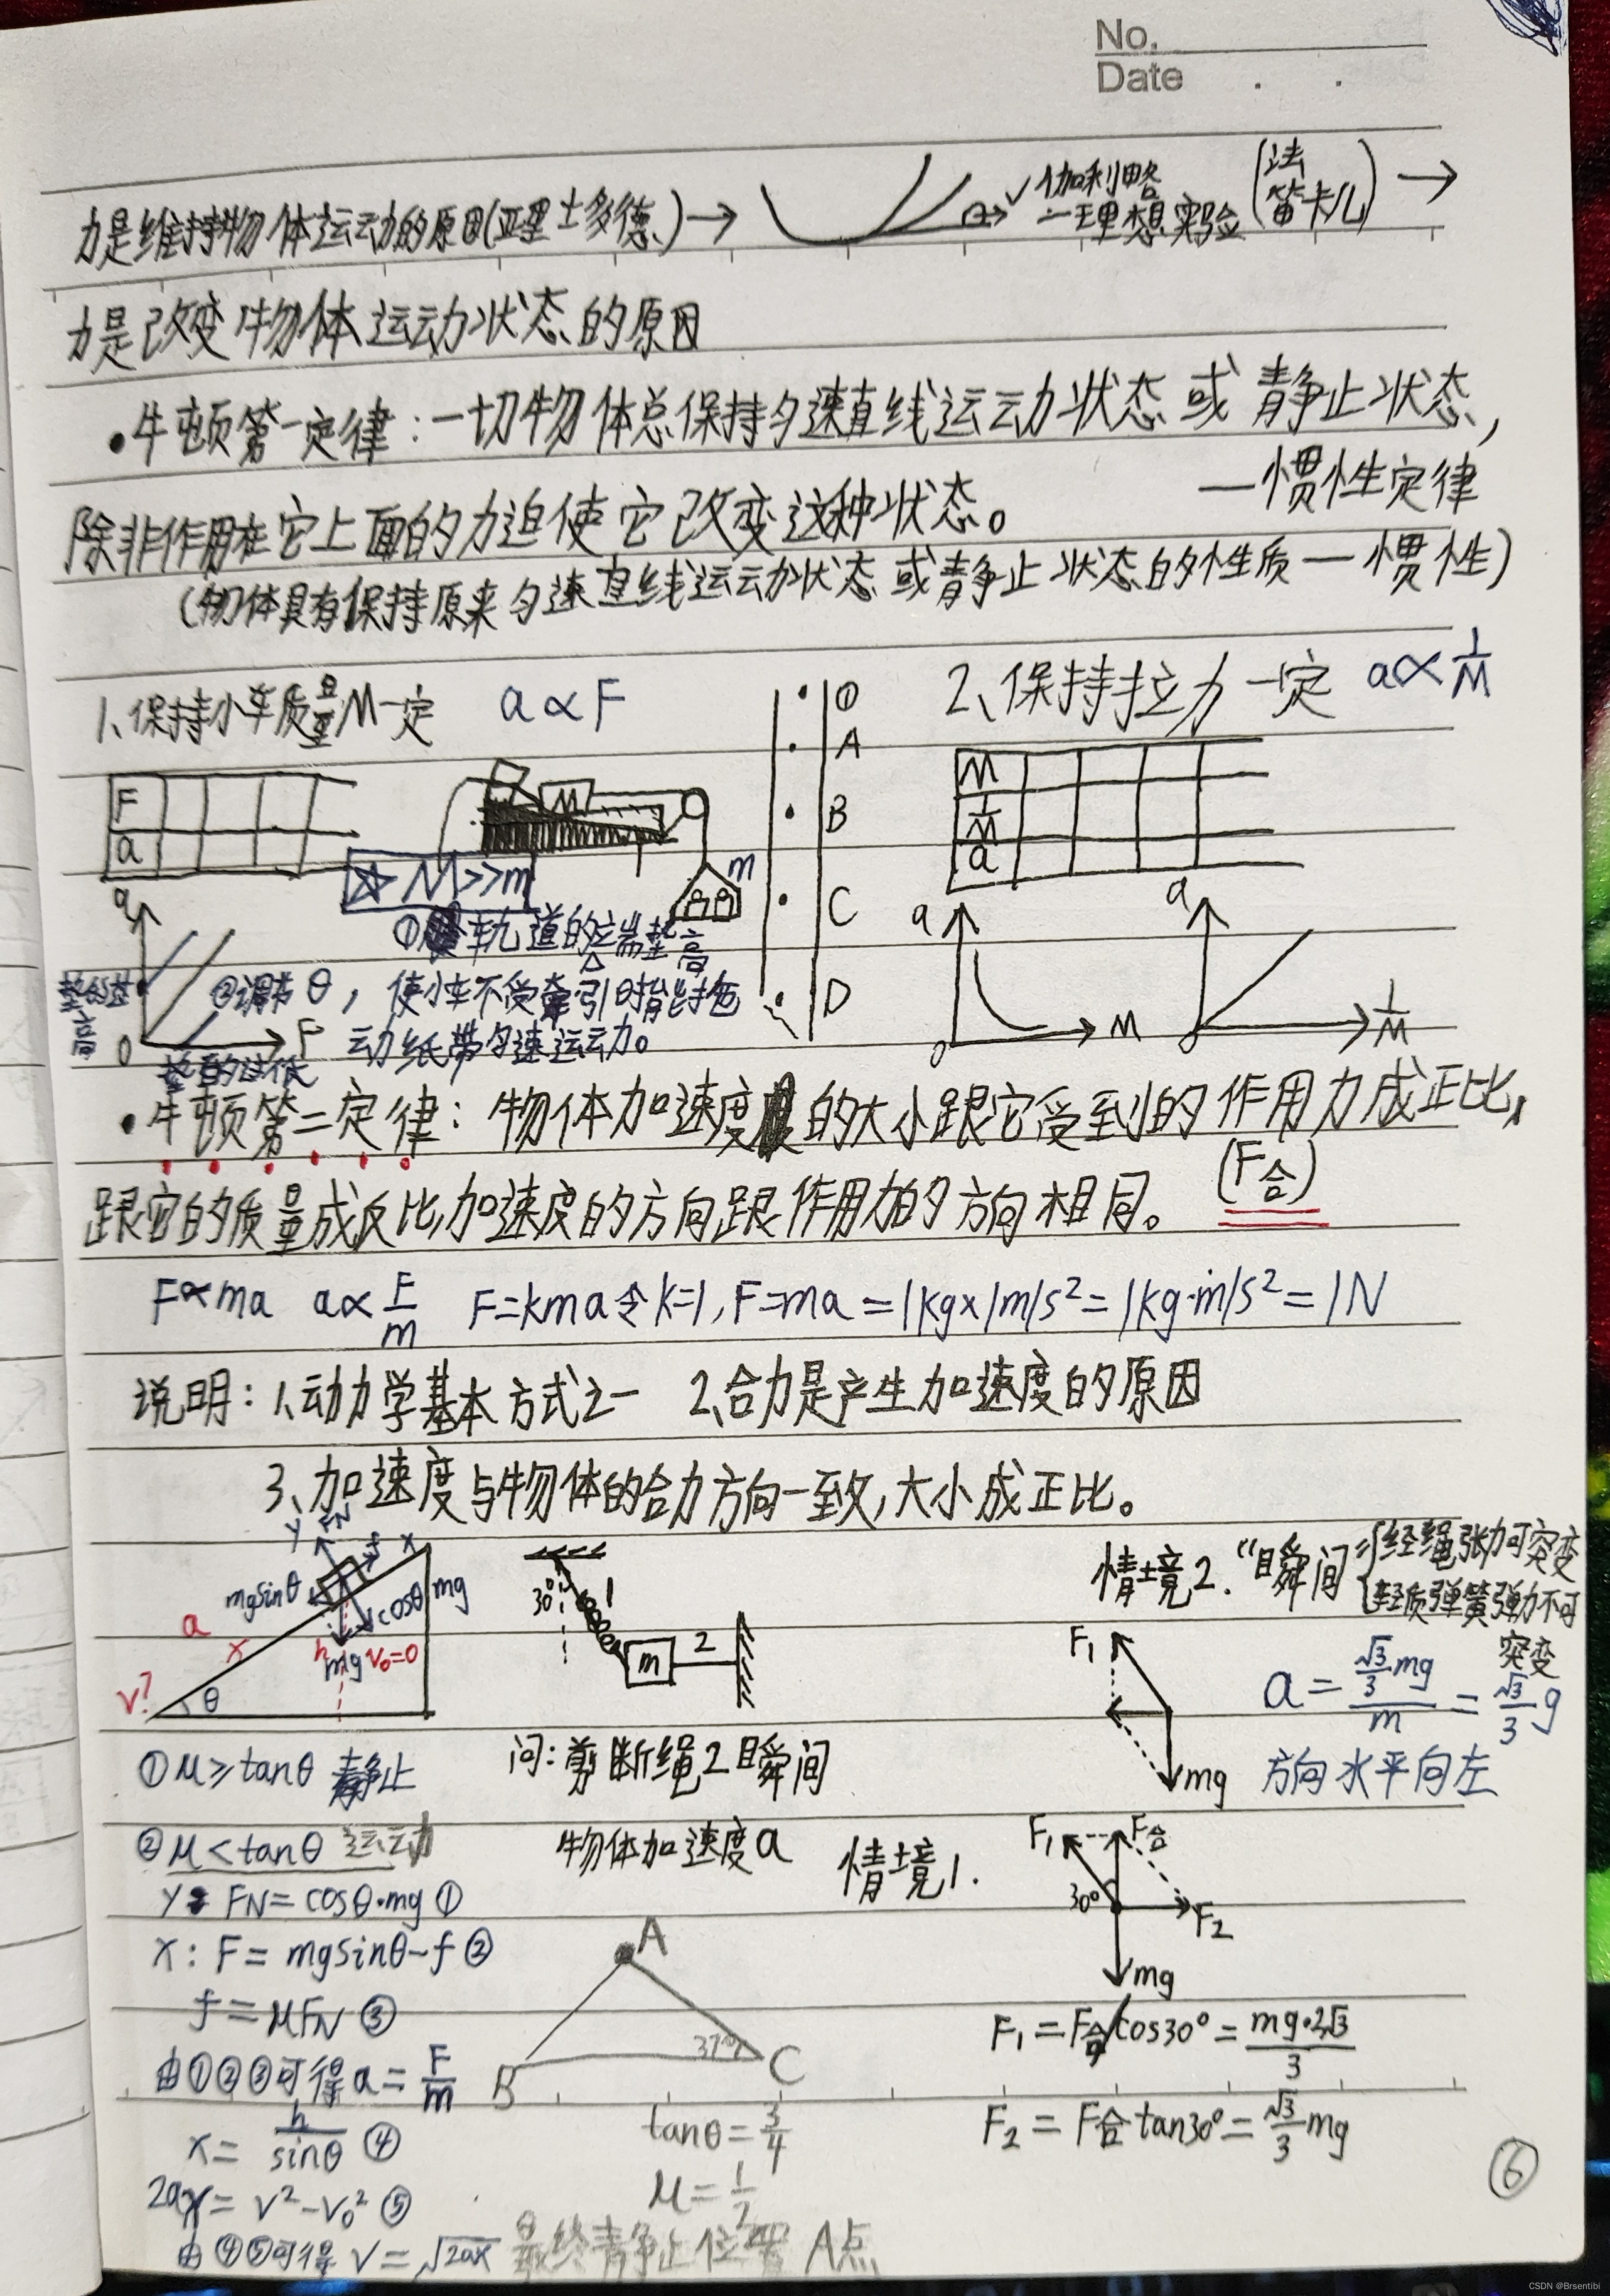 No.
Date
力是维持物体运动的原因(亚里士多德)→ 伽利略 (法
一理想实验 笛卡儿) →
力是改变物体运动状态的原因
•牛顿第一定律:一切物体总保持匀速直线运动状态或静止状态,
除非作用在它上面的力迫使它改变这种状态。 —惯性定律
(物体具有保持原来匀速直线运动状态或静止状态的性质一惯性)
1、保持小车质量M一定 a∝F
F
a
M>>m
M
m
①轨道的左端垫高
②调节θ,使小车不受牵引时能拖
动纸带匀速运动。
a
F
0
O
A
B
C
D
2、保持拉力一定 a∝1/M
M
1/M
a
a
M
0
a
1/M
0
•牛顿第二定律:物体加速度的大小跟它受到的作用力成正比,
(F合)
跟它的质量成反比,加速度的方向跟作用力的方向相同。
F∝ma a∝F/m F=kma令k=1,F=ma=1kg×1m/s²=1kg·m/s²=1N
说明:1、动力学基本方式之一 2、合力是产生加速度的原因
3、加速度与物体的合力方向一致,大小成正比。
y FN f x
mgsinθ
cosθ mg
a
x
h
mg v₀=0
v? θ
①μ≥tanθ 静止
②μ<tanθ 运动
y: FN=cosθ·mg ①
x: F=mgsinθ-f ②
f=μFN ③
由①②③可得a=F/m
x=h/sinθ ④
2ax=v²-v₀² ⑤
由④⑤可得 v=√2ax
30° 1
m 2
问:剪断绳2瞬间
物体加速度a
A
B
37°
C
tanθ=3/4
μ=1/2
最终静止位置 A点
情境2.“瞬间 经绳张力可突变
轻质弹簧弹力不可
突变
F₁
mg
a=(√3/3 mg)/m=√3/3 g
方向水平向左
情境1.
F₁ F合
30°
F₂
mg
F₁=F合/cos30°=mg·2√3/3
F₂=F合tan30°=√3/3 mg
⑥
CSDN @Brsentibi